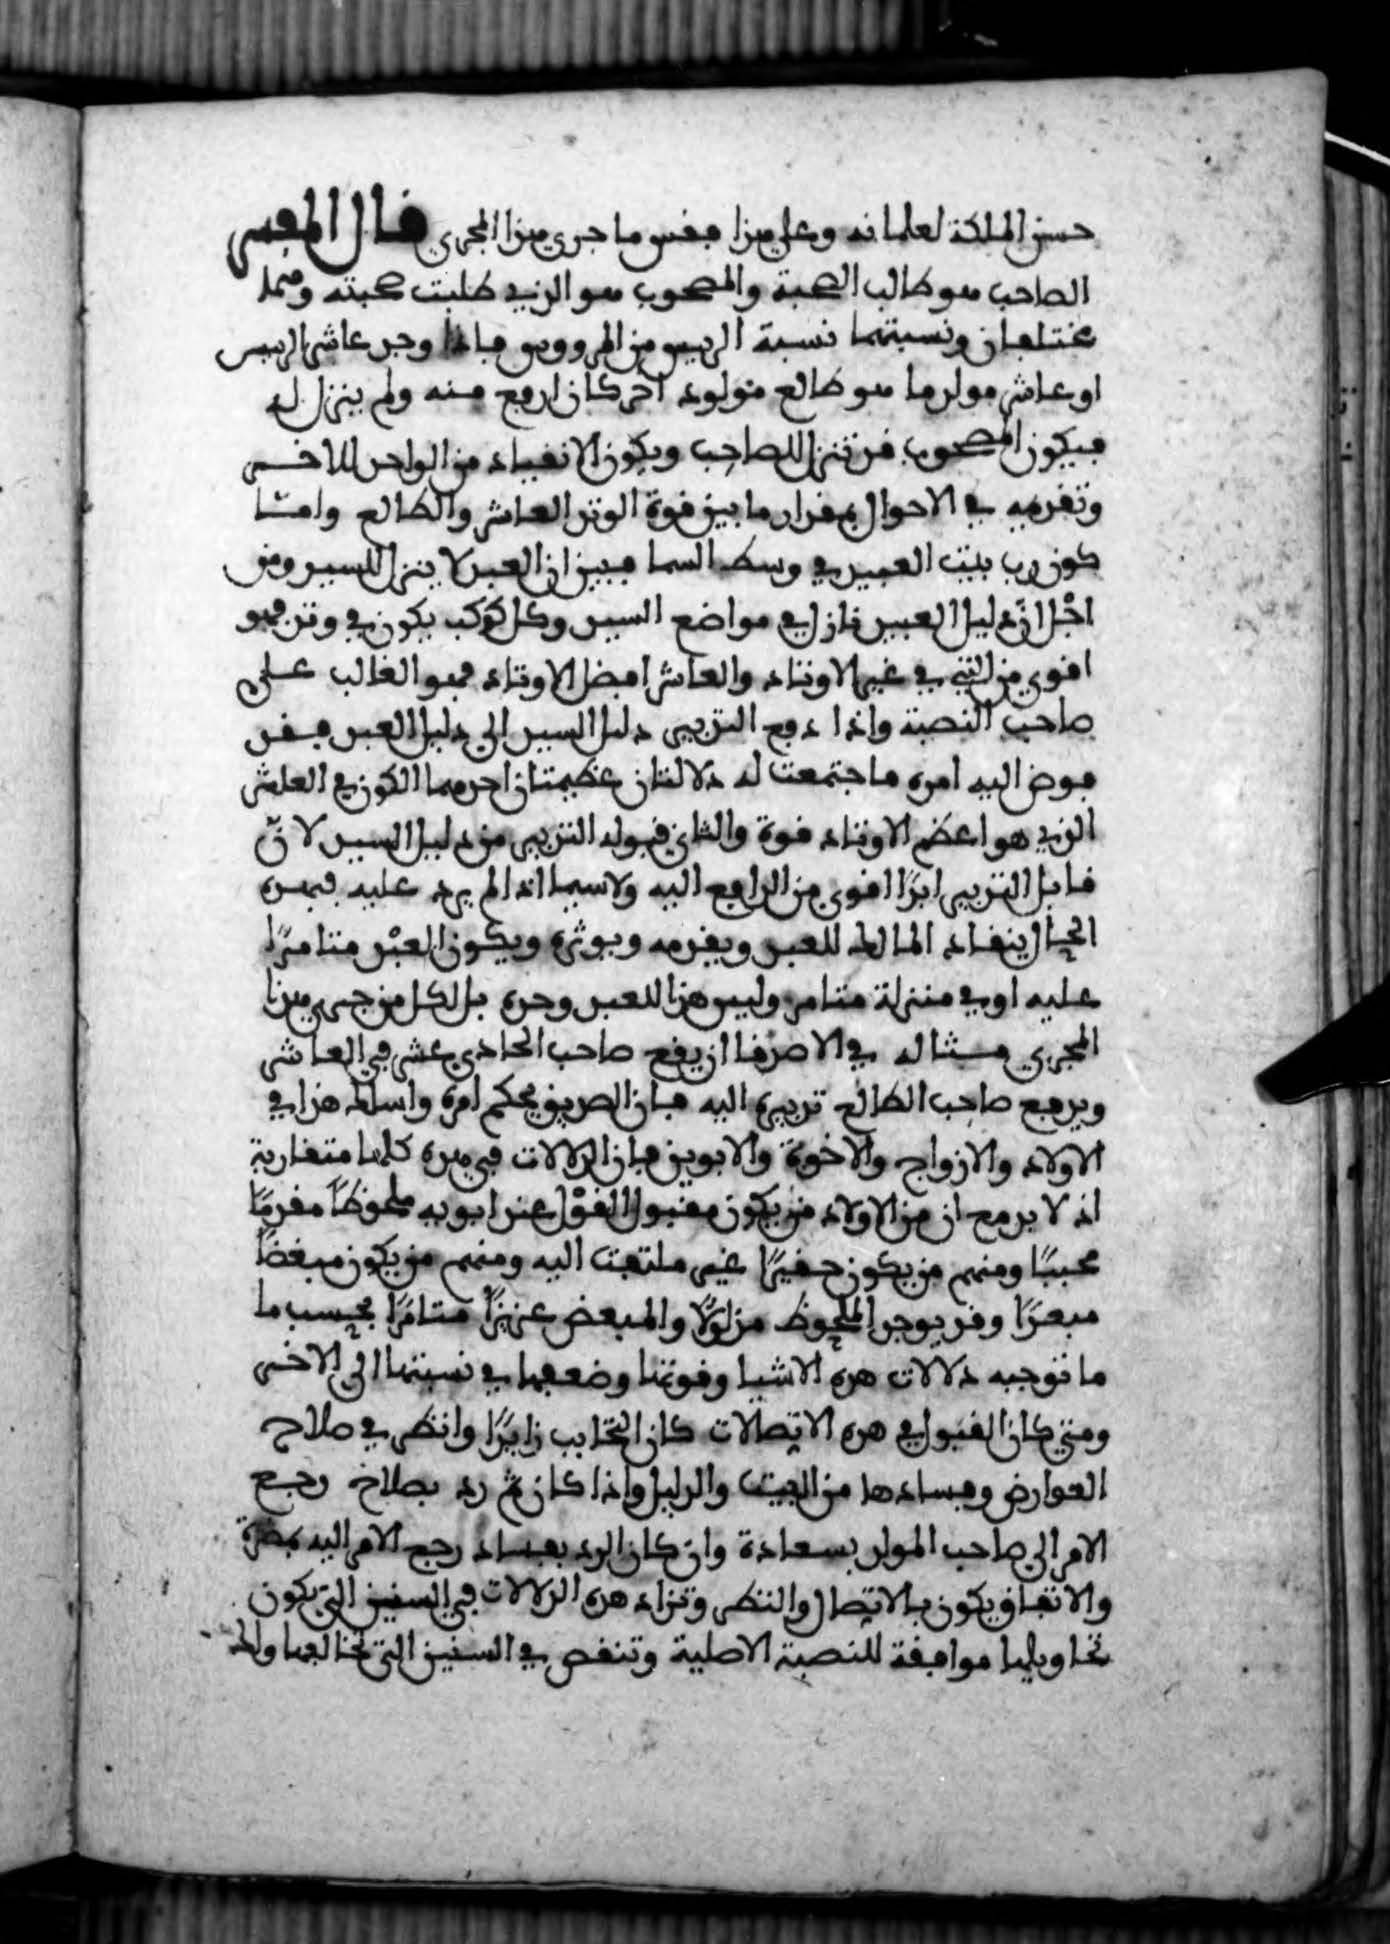 حسن الملكة لغلمانه وعلى هذا فقس ما جرى هذا المجرى قال المفسر
الصاحب هو طالب الصحبة والمصحوب هو الذي طلبت صحبته وهما
مختلفان ونسبتهما نسبة الرييس من المرووس فاذا وجد عاشر الرييس
او عاشر مولد ما هو طالع مولود اخر كان ارفع منه ولم ينزل له
فيكون المصحوب قد تنزل للصاحب ويكون الانقياد من الواحد للاخر
وتقدمه في الاحوال بمقدار ما بين قوة الوتد العاشر والطالع وامّا
كون رب بيت العبيد في وسط السما فبين ان العبد لا ينزل للسيد ومن
اجْل انّ دليل العبيد نازل في مواضع السيد وكل كوكب يكون في وتد فهو
اقوى من التي في غير الاوتاد والعاشر افضل الاوتاد فهو الغالب على
صاحب النصبة واذا دفع التدبير دليل السيد الى دليل العبد فقد
فوض اليه امره فاجتمعت له دلالتان عظيمتان احدهما الكون في العاشر
الذي هو اعظم الاوتاد قوة والثاني قبوله التدبير من دليل السيد لانّ
قابل التدبير ابدًا اقوى من الدافع اليه ولاسيما اذا لم يرد عليه فبهذه
الحيال ينقاد المالك للعبد ويقدمه ويوثره ويكون العبْد متامرًا
عليه او في منزلة متامر وليس هذا للعبد وحده بل لكل من جرى هذا
المجرى مثاله في الاصدقا ان يقع صاحب الحادي عشر في العاشر
ويدفع صاحب الطالع تدبيره اليه فبان الصديق يحكم امره واسلك هذا في
الاولاد والازواج والاخوة والابوين فبان الدلالات في هذه كلها متقاربة
اذ لا يدفع ان من الاولاد من يكون مقبول القوْل عند ابويه ملحوظًا مقدمًا
محببًا ومنهم من يكون حقيرًا غير ملتفت اليه ومنهم من يكون مبغضًا
مبعدًا وقد يوجد الملحوظ مذلولًا والمبغض عزيزًا متامرًا بحسب ما
ما توجبه دلالات هذه الاشيا وقوتها وضعفها في نسبتها الى الاخر
ومتى كان القبول في هذه الاتصالات كان التحابب زايدًا وانظر في صلاح
العوارض وفسادها من البيت والدليل واذا كان ثم رد بصلاح رجع
الامر الى صاحب المولد بسعادة وان كان الرد بفساد رجع الامر اليه بمضرة
والاتفاق يكون بالاتصال والنظر وتزاد هذه الدلالات في السنين التي يكون
تحاويلها موافقة للنصبة الاصلية وتنقص في السنين التي تخالفها والله